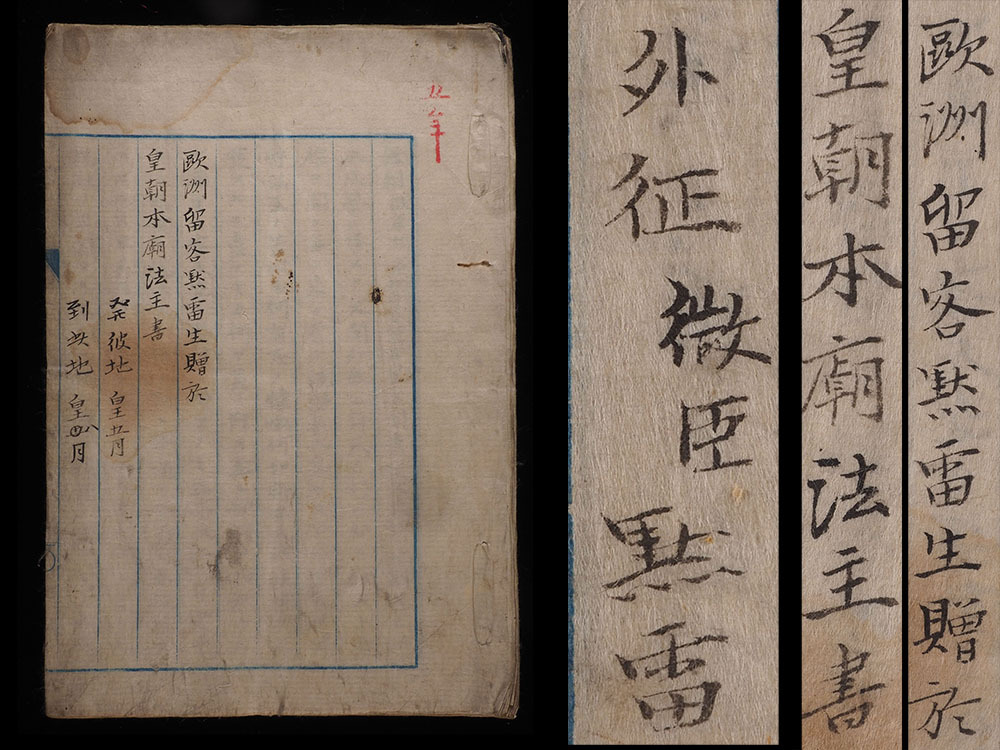 五年
歐洲留客默雷生贈於
皇朝本廟法主書
彼地 皇五月
到 地 皇 月
歐洲留客默雷生贈於
皇朝本廟法主書
外征微臣默雷